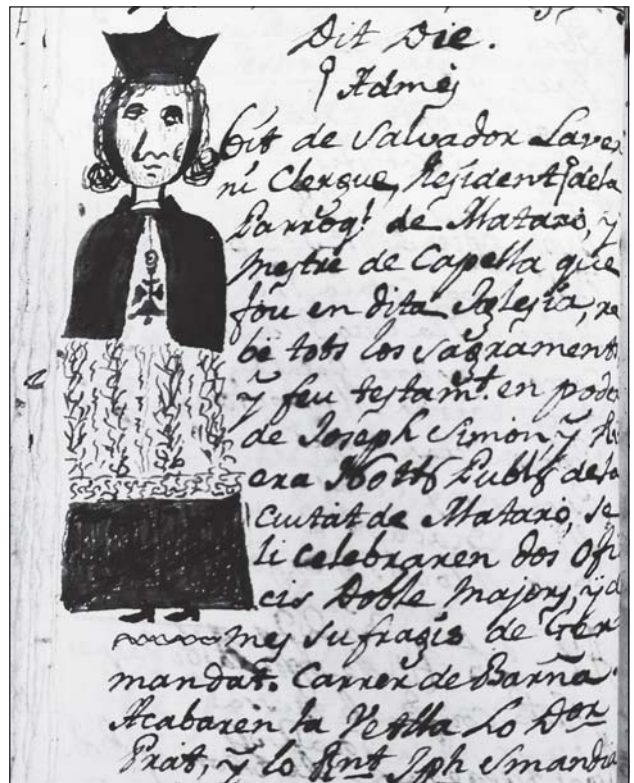 Dit Die.
Admej
bit de Salvador Laver
ni Clergue, Resident dela
Parroql. de Mataró, y
Mestre de Capella que
fou en dita Iglesia, re
bé tots los sagraments
y feu testamt. en poder
de Joseph Simon y
era Nott Publ dela
Ciutat de Mataró, se
li celebraren dos Ofi
cis Doble Majors, y d
mes sufragis de Ger
mandat. Carrer de Barña
Acabaren la Vetlla Lo Dor
Prat, y lo Rnt Jph Smandia